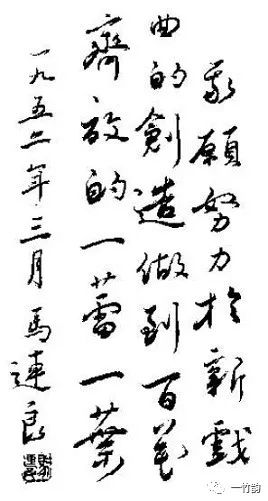 我願努力於新戲
曲的創造做到百花
齊放的一蕾一葉
一九五二年三月馬連良
一竹韵